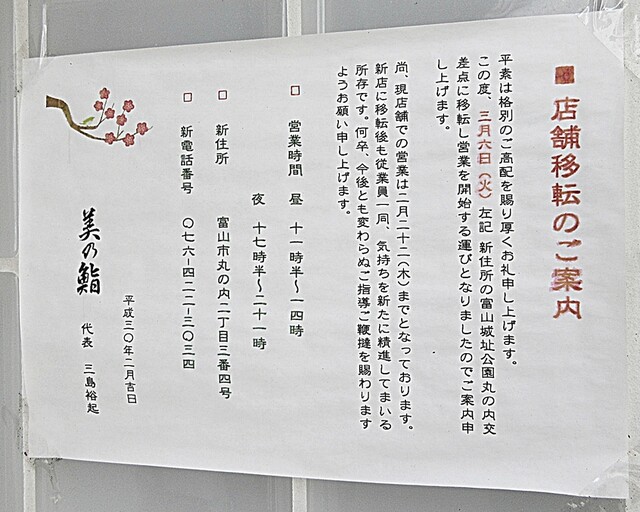 ■ 店舗移転のご案内
平素は格別のご高配を賜り厚くお礼申し上げます。
この度、三月六日(火)左記 新住所の富山城址公園丸の内交
差点に移転し営業を開始する運びとなりましたのでご案内申
し上げます。
尚、現店舗での営業は二月二十二(木)までとなっております。
新店に移転後も従業員一同、気持ちを新たに精進してまいる
所存です。何卒、今後とも変わらぬご指導ご鞭撻を賜わります
ようお願い申し上げます。
□ 営業時間 昼 十一時半〜一四時
夜 十七時半〜二十一時
□ 新住所 富山市丸の内二丁目三番四号
□ 新電話番号 〇七六ー四二二ー三〇三四
平成三〇年二月吉日
美乃鮨 代表 三島裕起